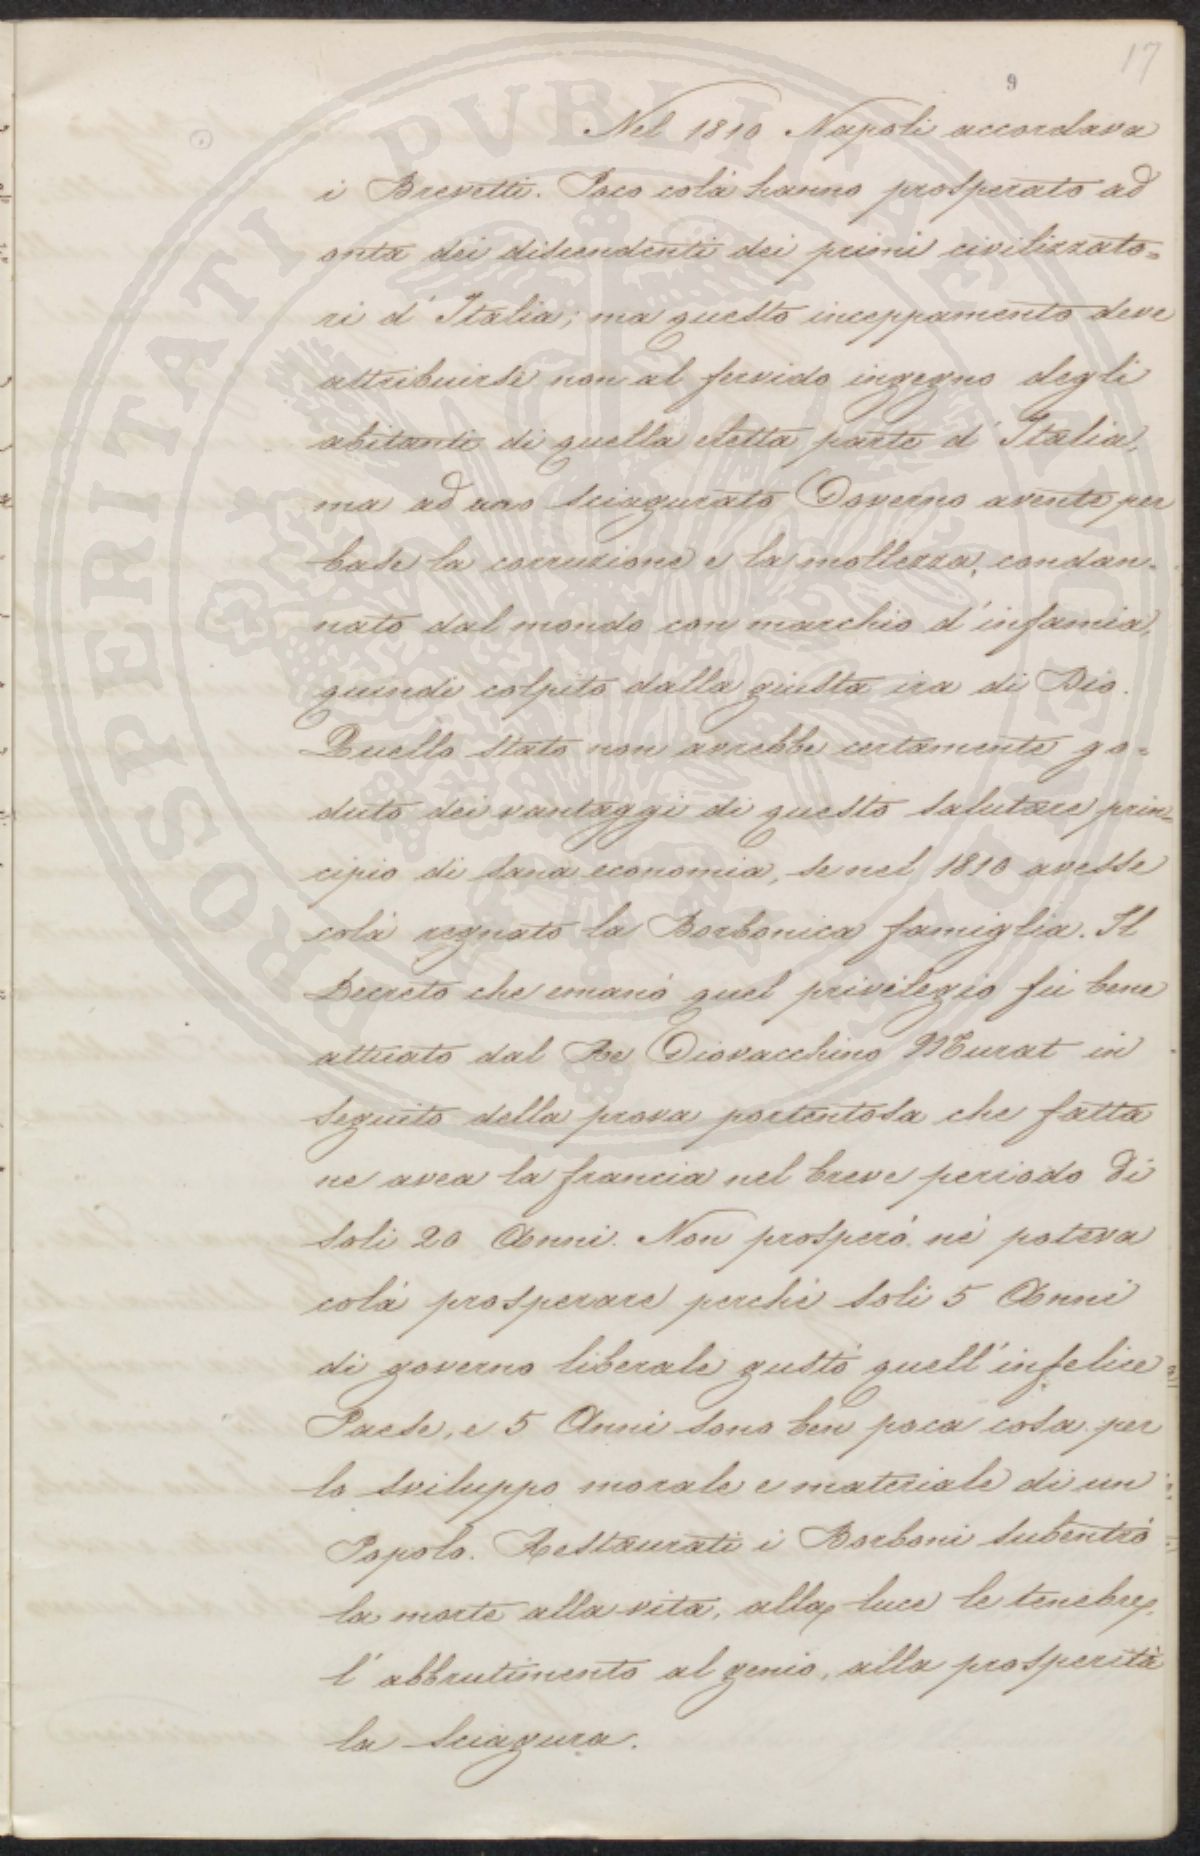 17
9
Nel 1810 Napoli accordava
i Brevetti. Poco colà hanno prosperato ad
onta dei discendenti dei primi civilizzato=
ri d'Italia; ma questo inceppamento deve
attribuirsi non al fervido ingegno degli
abitanti di quella eletta parte d'Italia,
ma ad uno sciagurato Governo avente per
base la corruzione e la mollezza, condan=
nato dal mondo con marchio d'infamia,
quindi colpito dalla giusta ira di Dio.
Quello stato non avrebbe certamente go=
duto dei vantaggi di questo salutare prin=
cipio di sana economia, se nel 1810 avesse
colà regnato la Borbonica famiglia. Il
Decreto che emanò quel privilegio fù bene
attuato dal Re Giovacchino Murat in
seguito della prova portentosa che fatta
ne avea la francia nel breve periodo di
soli 20 Anni. Non prosperò nè poteva
colà prosperare perchè soli 5 Anni
di governo liberale gustò quell'infelice
Paese, e 5 Anni sono ben poca cosa per
lo sviluppo morale e materiale di un
Popolo. Restaurati i Borboni subentrò
la morte alla vita, alla luce le tenebre,
l'abbrutimento al genio, alla prosperità
la sciagura.
PROSPERITATI PUBLICAE AUGENDAE